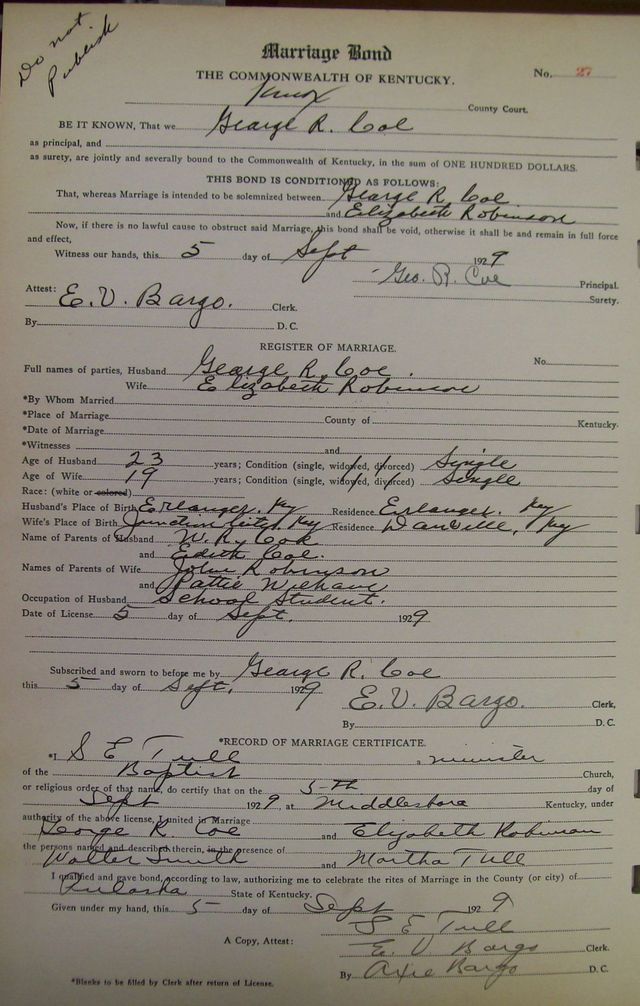 Do not
Publish
Marriage Bond
No. 27
THE COMMONWEALTH OF KENTUCKY.
Knox County Court.
BE IT KNOWN, That we George R. Coe
as principal, and
as surety, are jointly and severally bound to the Commonwealth of Kentucky, in the sum of ONE HUNDRED DOLLARS.
THIS BOND IS CONDITIONED AS FOLLOWS:
That, whereas Marriage is intended to be solemnized between George R. Coe
and Elizabeth Robinson
Now, if there is no lawful cause to obstruct said Marriage, this bond shall be void, otherwise it shall be and remain in full force
and effect,
Witness our hands, this 5 day of Sept 1929
Geo. R. Coe Principal.
Surety.
Attest: E. V. Bargo. Clerk.
By D. C.
REGISTER OF MARRIAGE.
No.
Full names of parties, Husband George R. Coe.
Wife Elizabeth Robinson
*By Whom Married
*Place of Marriage County of Kentucky.
*Date of Marriage
*Witnesses and
Age of Husband 23 years; Condition (single, widowed, divorced) Single
Age of Wife 19 years; Condition (single, widowed, divorced) Single
Race: (white or colored)
Husband's Place of Birth Erlanger, Ky Residence Erlanger, Ky
Wife's Place of Birth Junction City, Ky Residence Danville, Ky
Name of Parents of Husband W. R. Cok
and Edith Coe.
Names of Parents of Wife John Robinson
and Pattie
Occupation of Husband School Student.
Date of License 5 day of Sept. 1929
Subscribed and sworn to before me by George R. Coe
this 5 day of Sept. 1929
E. V. Bargo. Clerk,
By D. C.
*RECORD OF MARRIAGE CERTIFICATE.
*I S E Tull, a minister
of the Baptist Church,
or religious order of that name, do certify that on the 5-th day of
Sept 1929, at Middlesboro Kentucky, under
authority of the above license, I united in Marriage
George R. Coe and Elizabeth Robinson
the persons named and described therein, in the presence of
Walter Smith and Martha Tull
I qualified and gave bond, according to law, authorizing me to celebrate the rites of Marriage in the County (or city) of
Pulaska State of Kentucky.
Given under my hand, this 5 day of Sept 1929
S E Tull
A Copy, Attest: E. V Bargo Clerk.
By Bargo D. C.
*Blanks to be filled by Clerk after return of License.